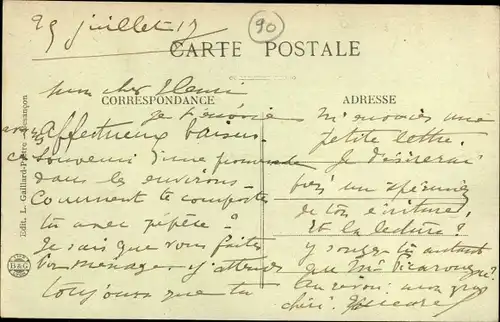 29 juillet 17
90
CARTE POSTALE
mon cher Henri
CORRESPONDANCE
ADRESSE
Je t'envoie
affectueux baisers
souvenir d'une promenade
dans les environs.
Comment te comportes
tu avec pépère ?
Je sais que vous faites
bon ménage, j'attends
toujours que tu
m'envoies une
petite lettre.
Je désirerai
de ton écriture,
Et la lecture ?
y songes tu autant
que Mr
Au revoir, mon gros
chéri.
Edit. L. Gaillard-Prêtre - Besançon
B&G